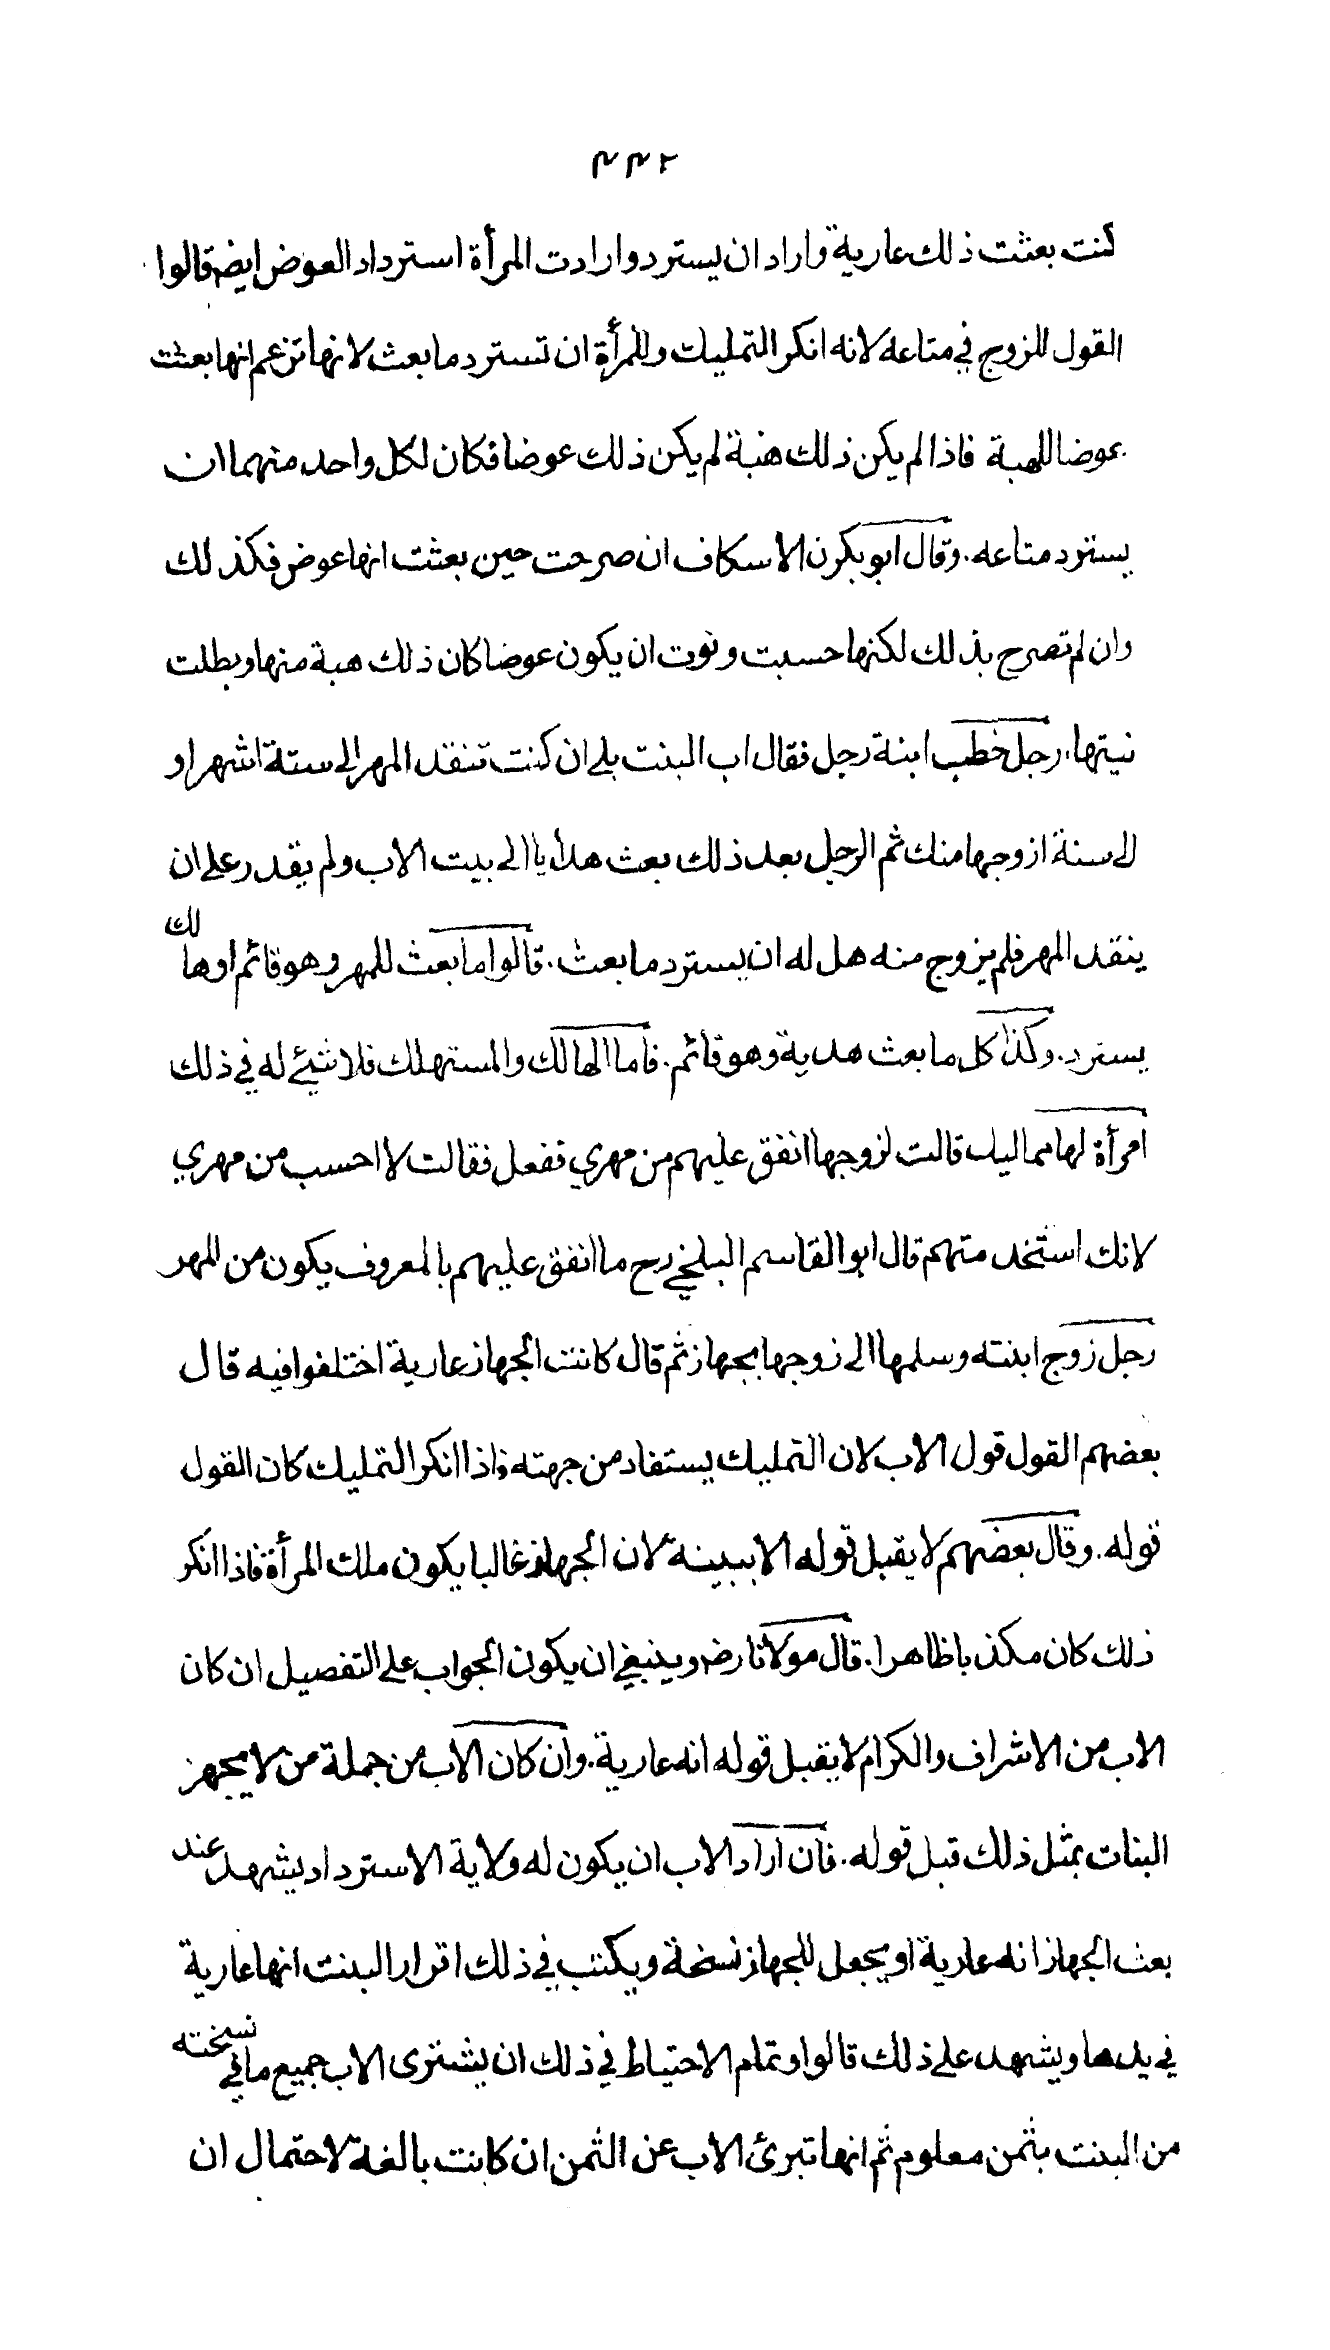 ۴۴۲
كنت بعثت ذلك عارية واراد ان يسترد وارادت المرأة استرداد العوض ايضا قالوا
القول للزوج في متاعه لانه انكر التمليك وللمرأة ان تسترد ما بعث لانها تزعم انها بعثت
عوضا للهبة فاذا لم يكن ذلك هبة لم يكن ذلك عوضا فكان لكل واحد منهما ان
يسترد متاعه . وقال ابو بكرن الاسكاف ان صرحت حين بعثت انها عوض فكذلك
وان لم تصرح بذلك لكنها حسبت ونوت ان يكون عوضا كان ذلك هبة منها وبطلت
نيتها . رجل خطب ابنة رجل فقال اب البنت بلى ان كنت تنقد المهر الى ستة اشهر او
الى سنة ازوجها منك ثم الرجل بعد ذلك بعث هدايا الى بيت الاب ولم يقدر على ان
ينقد المهر فلم يزوج منه هل له ان يسترد ما بعث . قالوا ما بعث للمهر وهو قائم او هالك
يسترد . وكذا كل ما بعث هدية وهو قائم . فاما الهالك والمستهلك فلا شيئ له في ذلك
امرأة لها مماليك قالت لزوجها انفق عليهم من مهري ففعل فقالت لا احسب من مهري
لانك استخدمتهم قال ابو القاسم البلخي رح ما انفق عليهم بالمعروف يكون من المهر
رجل زوج ابنته وسلمها الى زوجها بجهاز ثم قال كانت الجهاز عارية اختلفوا فيه قال
بعضهم القول قول الاب لان التمليك يستفاد من جهته فاذا انكر التمليك كان القول
قوله . وقال بعضهم لا يقبل قوله الا ببينة لان الجهاز غالبا يكون ملك المرأة فاذا انكر
ذلك كان مكذبا ظاهرا . قال مولانا رض وينبغي ان يكون الجواب على التفصيل ان كان
الاب من الاشراف والكرام لا يقبل قوله انه عارية . وان كان الاب من جملة من لا يجهز
البنات بمثل ذلك قبل قوله . فان اراد الاب ان يكون له ولاية الاسترداد يشهد عند
بعث الجهاز انه عارية او يجعل للجهاز نسخة ويكتب في ذلك اقرار البنت انها عارية
في يدها ويشهد على ذلك قالوا وتمام الاحتياط في ذلك ان يشترى الاب جميع ما في نسخته
من البنت بثمن معلوم ثم انها تبرئ الاب عن الثمن ان كانت بالغة لاحتمال ان